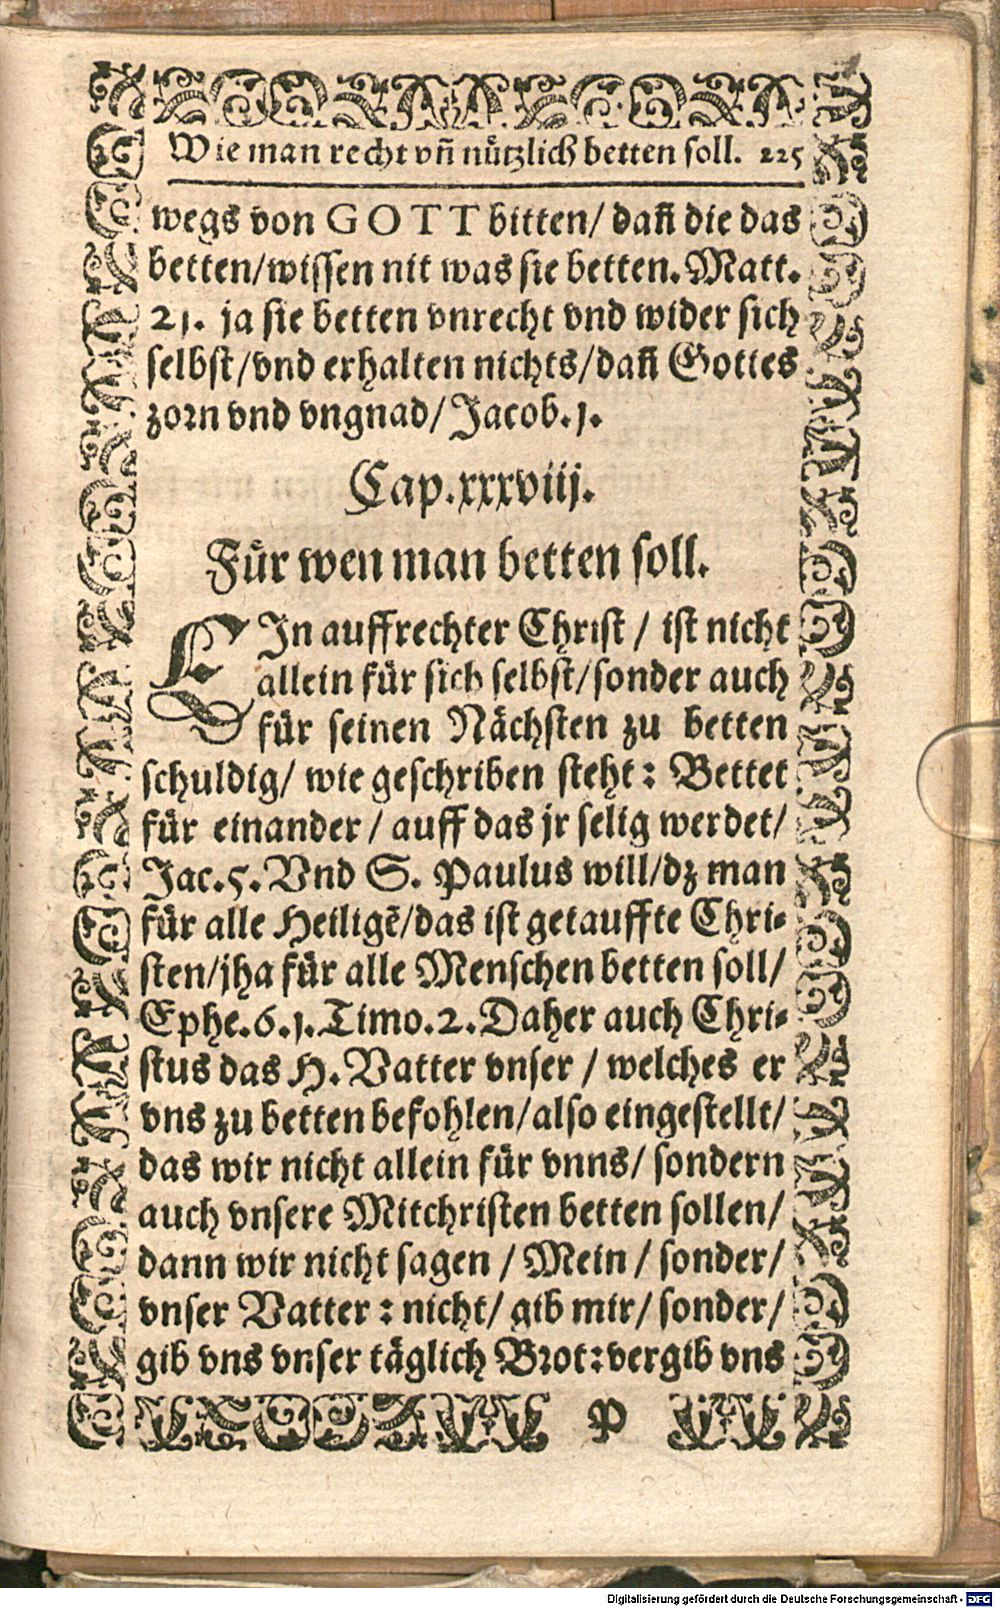 Wie man recht vñ nützlich betten soll. 225
wegs von GOTT bitten/ dañ die das
betten/wissen nit was sie betten. Matt.
21. ja sie betten vnrecht vnd wider sich
selbst/vnd erhalten nichts/dañ Gottes
zorn vnd vngnad/ Jacob. j.
Cap. xxxviij.
Für wen man betten soll.
EIn auffrechter Christ / ist nicht
allein für sich selbst/sonder auch
für seinen Nächsten zu betten
schuldig/ wie geschriben steht: Bettet
für einander / auff das jr selig werdet/
Jac. 5. Vnd S. Paulus will/dz man
für alle Heiligē/das ist getauffte Chri-
sten/jha für alle Menschen betten soll/
Ephe. 6. j. Timo. 2. Daher auch Chri-
stus das H. Vatter vnser / welches er
vns zu betten befohlen/also eingestellt/
das wir nicht allein für vnns/ sondern
auch vnsere Mitchristen betten sollen/
dann wir nicht sagen / Mein / sonder/
vnser Vatter : nicht/ gib mir/ sonder/
gib vns vnser täglich Brot: vergib vns
P
Digitalisierung gefördert durch die Deutsche Forschungsgemeinschaft - DFG